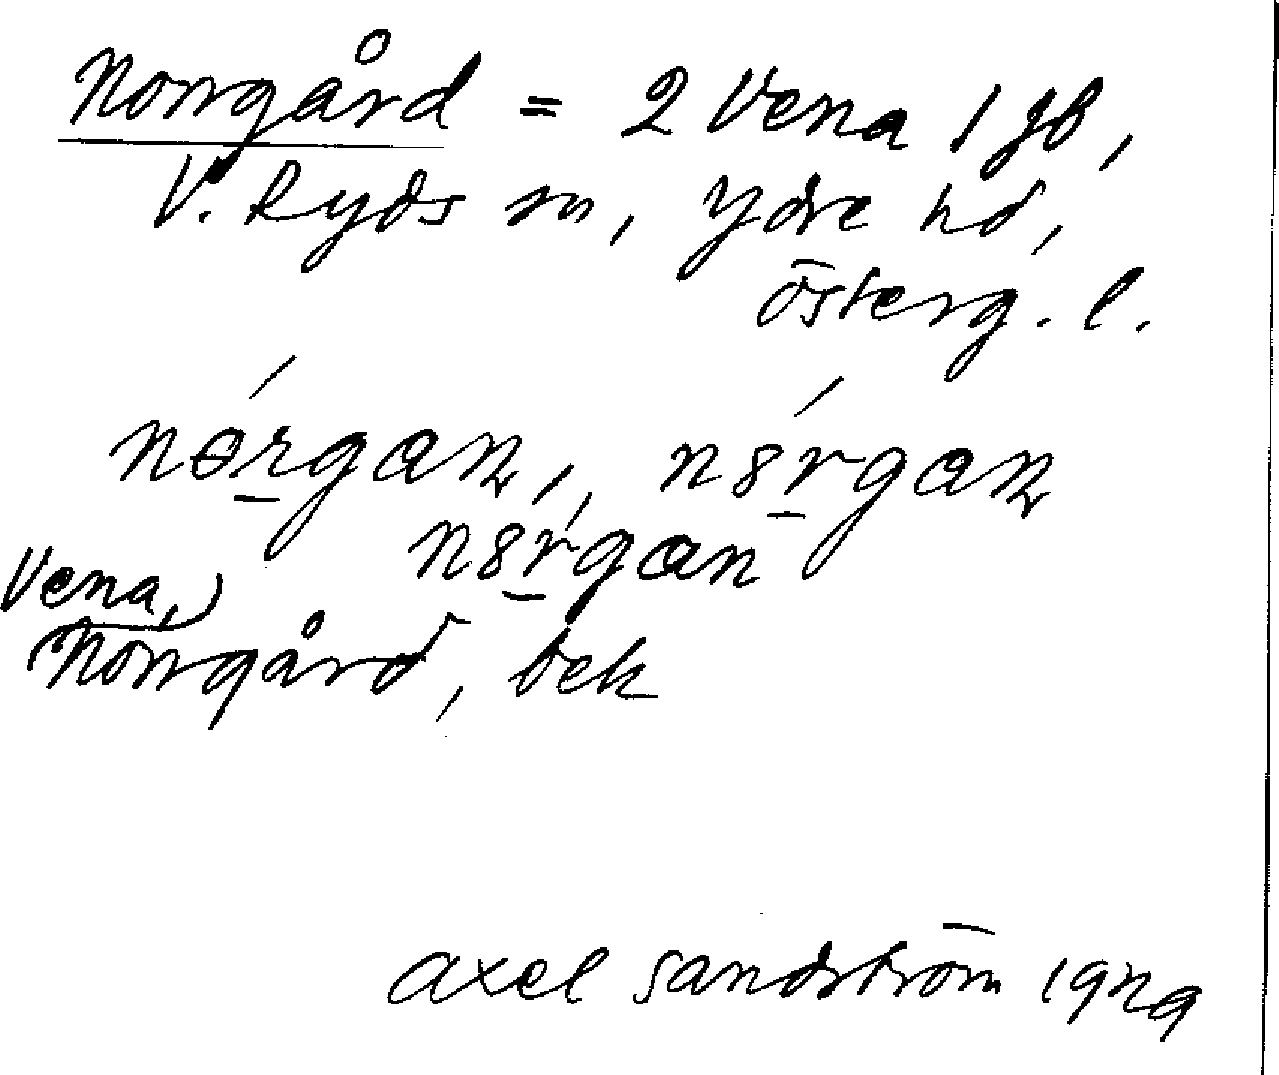 Norrgård = 2 Vena 1 gb,
V. Ryds sn, Ydre hd,
Österg. l.
nɵ́r̲gan, n8́r̲gan
n8́r̲gan
Vena,)
(Norrgård, bek
Axel Sandström 1929